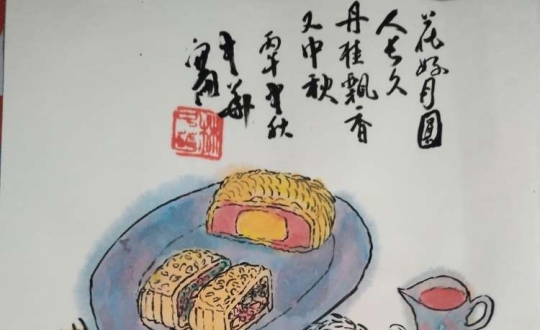 花好月圓
人长久
丹桂飄香
又中秋
丙午秋